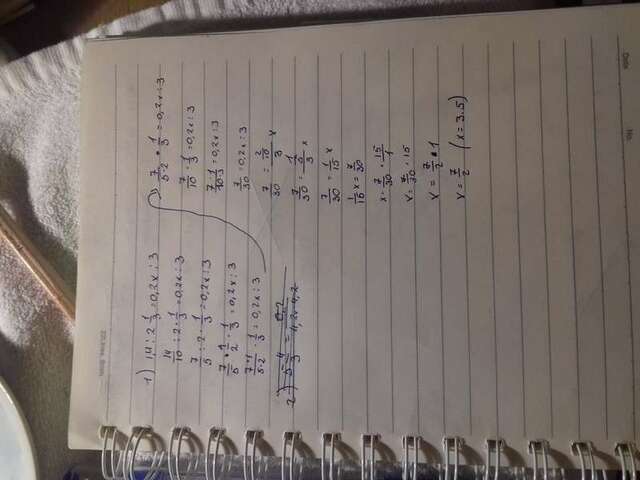 1) 14 : 2 1/3 = 0,2x : 3
14/10 : 2 · 1/3 = 0,2x : 3
7/5 : 2 · 1/3 = 0,2x : 3
7/5 · 1/2 · 1/3 = 0,2x : 3
7·1/5·2 · 1/3 = 0,2x : 3
7/5·2 · 1/3 = 0,2x : 3
7/10 · 1/3 = 0,2x : 3
7·1/10·3 = 0,2x : 3
7/30 = 0,2x : 3
7/30 = 2/10/3 x
7/30 = 1/5/3 x
7/30 = 1/15 x
1/15 x = 7/30
x · 7/30 · 15/1
x = 7/30 · 15
x = 7/2 · 1
x = 7/2 (x = 3.5)
Date
No.